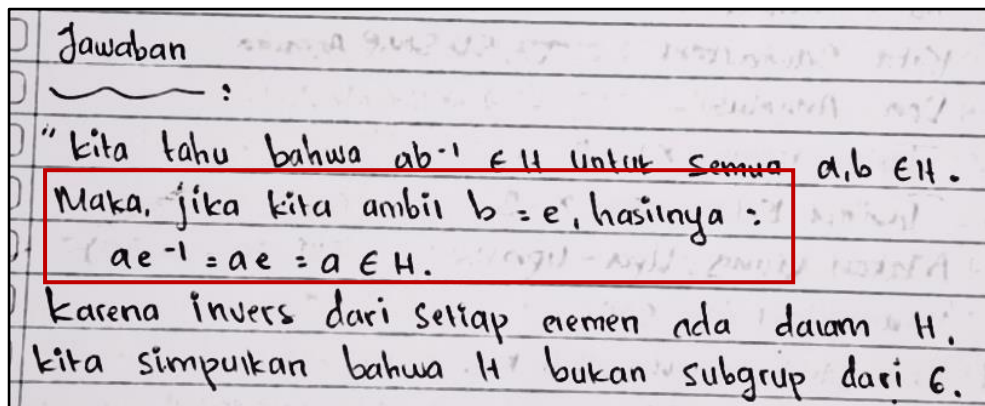 Jawaban
:
"kita tahu bahwa ab⁻¹ ∈ H untuk semua a,b ∈ H.
Maka, jika kita ambil b = e, hasilnya :
ae⁻¹ = ae = a ∈ H.
karena invers dari setiap elemen ada dalam H.
kita simpulkan bahwa H bukan subgrup dari G.